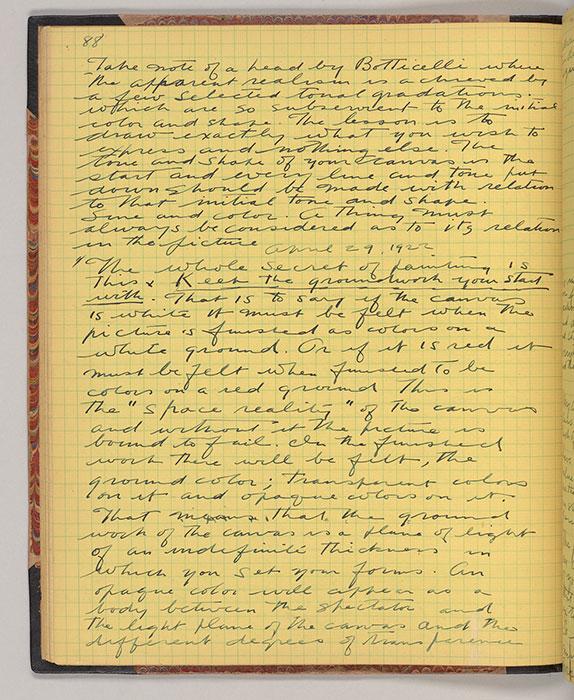 88
Take note of a head by Botticelli where
the apparent realism is achieved by
a few selected tonal gradations.
which are so subservient to the initial
color and shape. The lesson is to
draw exactly what you wish to
express and nothing else. The
tone and shape of your canvas is the
start and every line and tone put
down should be made with relation
to that initial tone and shape.
Line and color. A thing must
always be considered as to its relation
in the picture April 29, 1922
"The whole secret of painting is
this x Keep the groundwork you start
with. That is to say if the canvas
is white it must be felt when the
picture is finished as colors on a
white ground. Or if it is red it
must be felt when finished to be
colors on a red ground This is
the "space reality" of the canvas
and without it the picture is
bound to fail. In the finished
work there will be felt, the
ground color; transparent colors
on it and opaque colors on it.
That means that the ground
work of the canvas is a plane of light
of an indefinite thickness in
which you set your forms. An
opaque color will appear as a
body between the spectator and
the light plane of the canvas and the
different degrees of transference